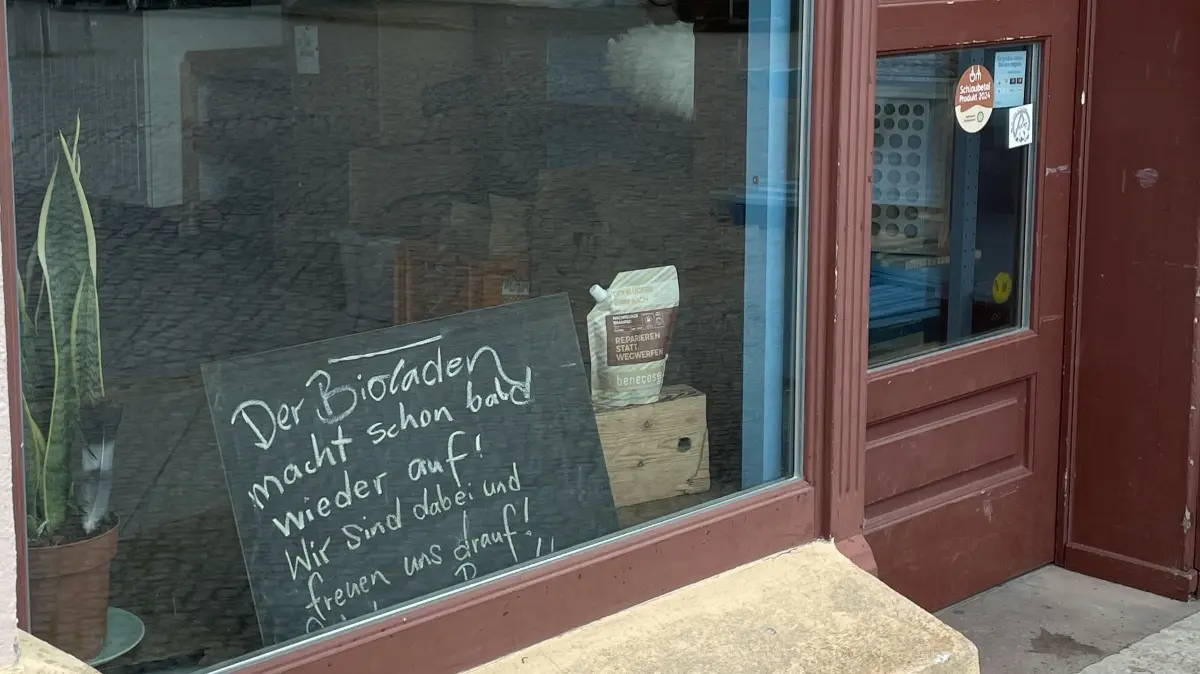 Der Bioladen
macht schon bald
wieder auf!
Wir sind dabei und
freuen uns drauf!
REPARIEREN
STATT
WEGWERFEN
benecos
Schlaubetal
Produkt 2024